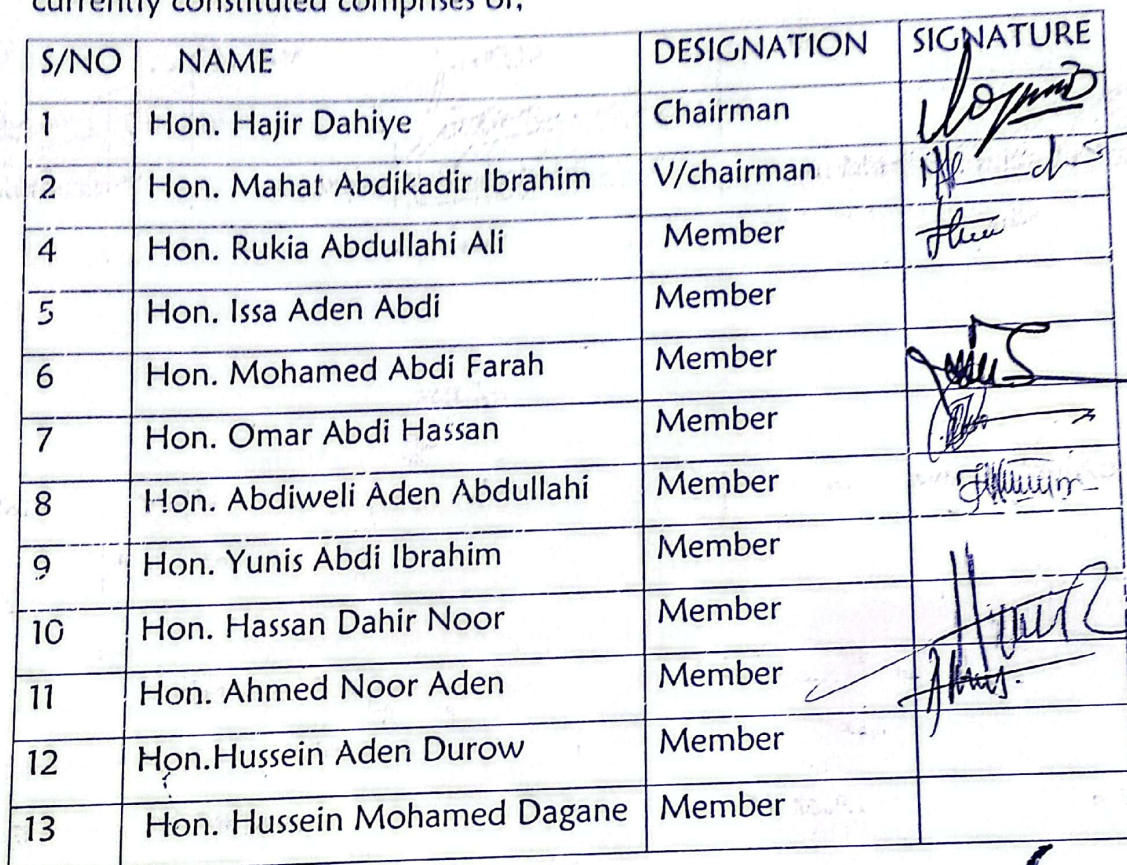 currently constituted comprises of;
S/NO NAME DESIGNATION SIGNATURE
1 Hon. Hajir Dahiye Chairman
2 Hon. Mahat Abdikadir Ibrahim V/chairman
4 Hon. Rukia Abdullahi Ali Member
5 Hon. Issa Aden Abdi Member
6 Hon. Mohamed Abdi Farah Member
7 Hon. Omar Abdi Hassan Member
8 Hon. Abdiweli Aden Abdullahi Member
9 Hon. Yunis Abdi Ibrahim Member
10 Hon. Hassan Dahir Noor Member
11 Hon. Ahmed Noor Aden Member
12 Hon.Hussein Aden Durow Member
13 Hon. Hussein Mohamed Dagane Member